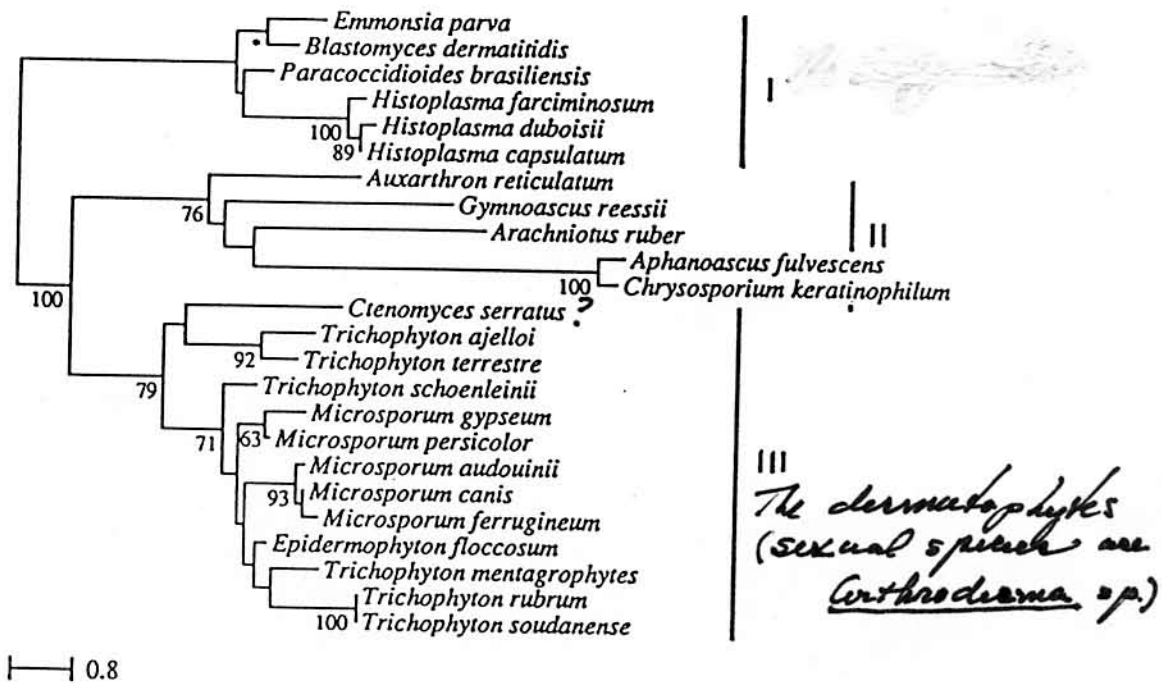 Emmonsia parva
Blastomyces dermatitidis
Paracoccidioides brasiliensis
I
Histoplasma farciminosum
100
Histoplasma duboisii
89
Histoplasma capsulatum
Auxarthron reticulatum
76
Gymnoascus reessii
Arachniotus ruber
II
Aphanoascus fulvescens
100
Chrysosporium keratinophilum
100
Ctenomyces serratus ?
Trichophyton ajelloi
92
Trichophyton terrestre
79
Trichophyton schoenleinii
Microsporum gypseum
71
63
Microsporum persicolor
Microsporum audouinii
93
Microsporum canis
Microsporum ferrugineum
Epidermophyton floccosum
Trichophyton mentagrophytes
Trichophyton rubrum
100
Trichophyton soudanense
III
The dermatophytes
(sexual species are
Arthroderma sp.)
0.8